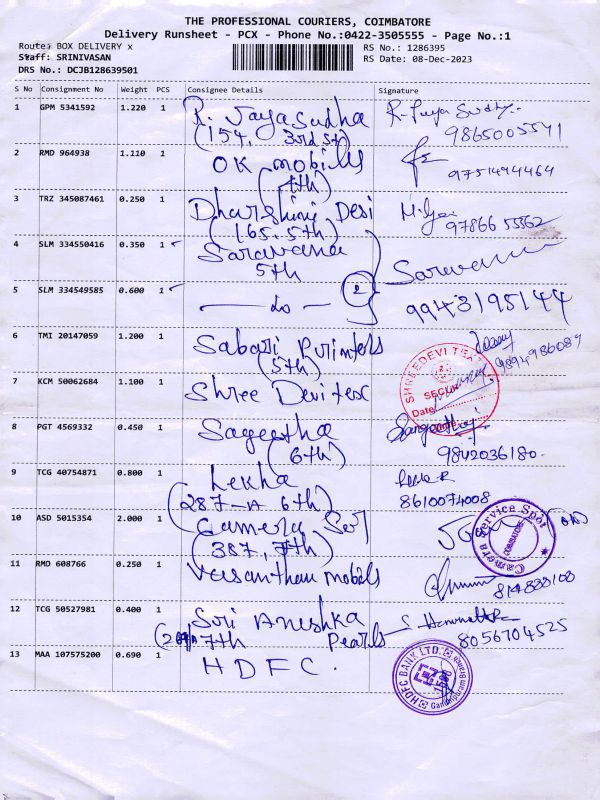 THE PROFESSIONAL COURIERS, COIMBATORE
Delivery Runsheet - PCX - Phone No.:0422-3505555 - Page No.:1
Route: BOX DELIVERY x
RS No.: 1286395
Staff: SRINIVASAN
RS Date: 08-Dec-2023
DRS No.: DCJB128639501
S No Consignment No Weight PCS Consignee Details Signature
1 GPM 5341592 1.220 1 R. Jayasudha
(154, 3rd st)
9865005541
2 RMD 964938 1.110 1 OK mobiles
(7th)
9751494464
3 TRZ 345087461 0.250 1 Dharshini Desi
(165, 5th)
97866 55362
4 SLM 334550416 0.350 1 Saravana
5th
Saravana
5 SLM 334549585 0.600 1 — do — 2
9943195144
6 TMI 20147059 1.200 1 Sabari Printers
(5th)
9894986089
7 KCM 50062684 1.100 1 Shree Devi tex
SHREEDEVI TEXT
Date
8 PGT 4569332 0.450 1 Sageetha
(6th)
9842036180
9 TCG 40754871 0.800 1 Lekha
(287-A 6th)
8610074008
10 ASD 5015354 2.000 1 Camera Ser
(387, 7th)
Camera Service Spot
COIMBATORE
11 RMD 608766 0.250 1 Vasanthan mobals
12 TCG 50527981 0.400 1 Sri Aneshka
7th Pearls
8056704525
13 MAA 107575200 0.690 1 HDFC.
HDFC BANK LTD.
Gandhipuram Branch